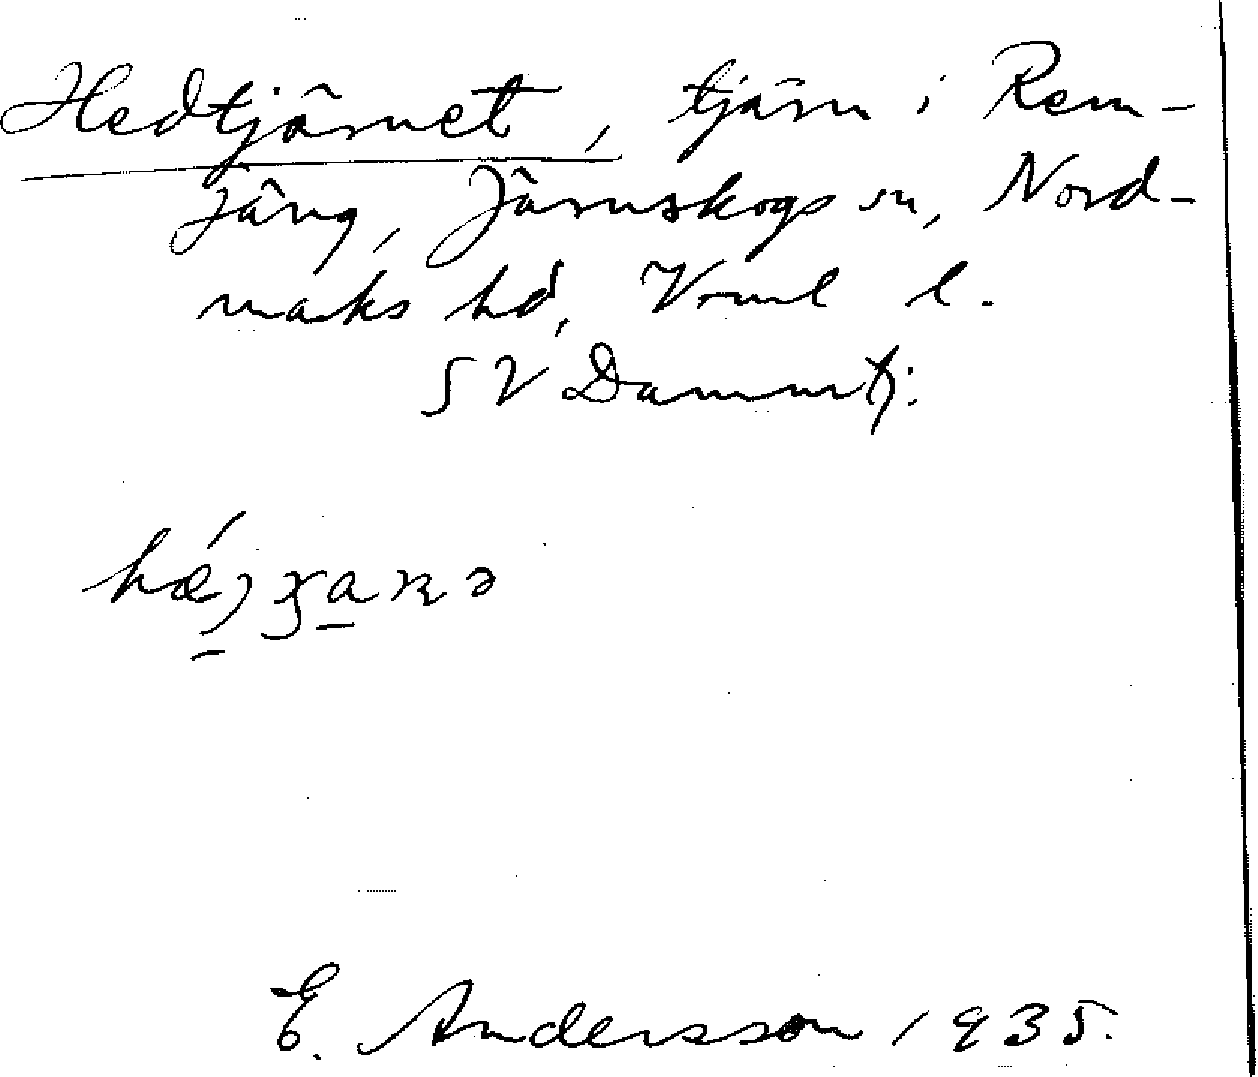 Hedtjärnet, tjärn i Rem-
jäng, Järnskogs sn, Nord-
marks hd, Vrml l.
SV Dammtj:
E. Andersson 1935.